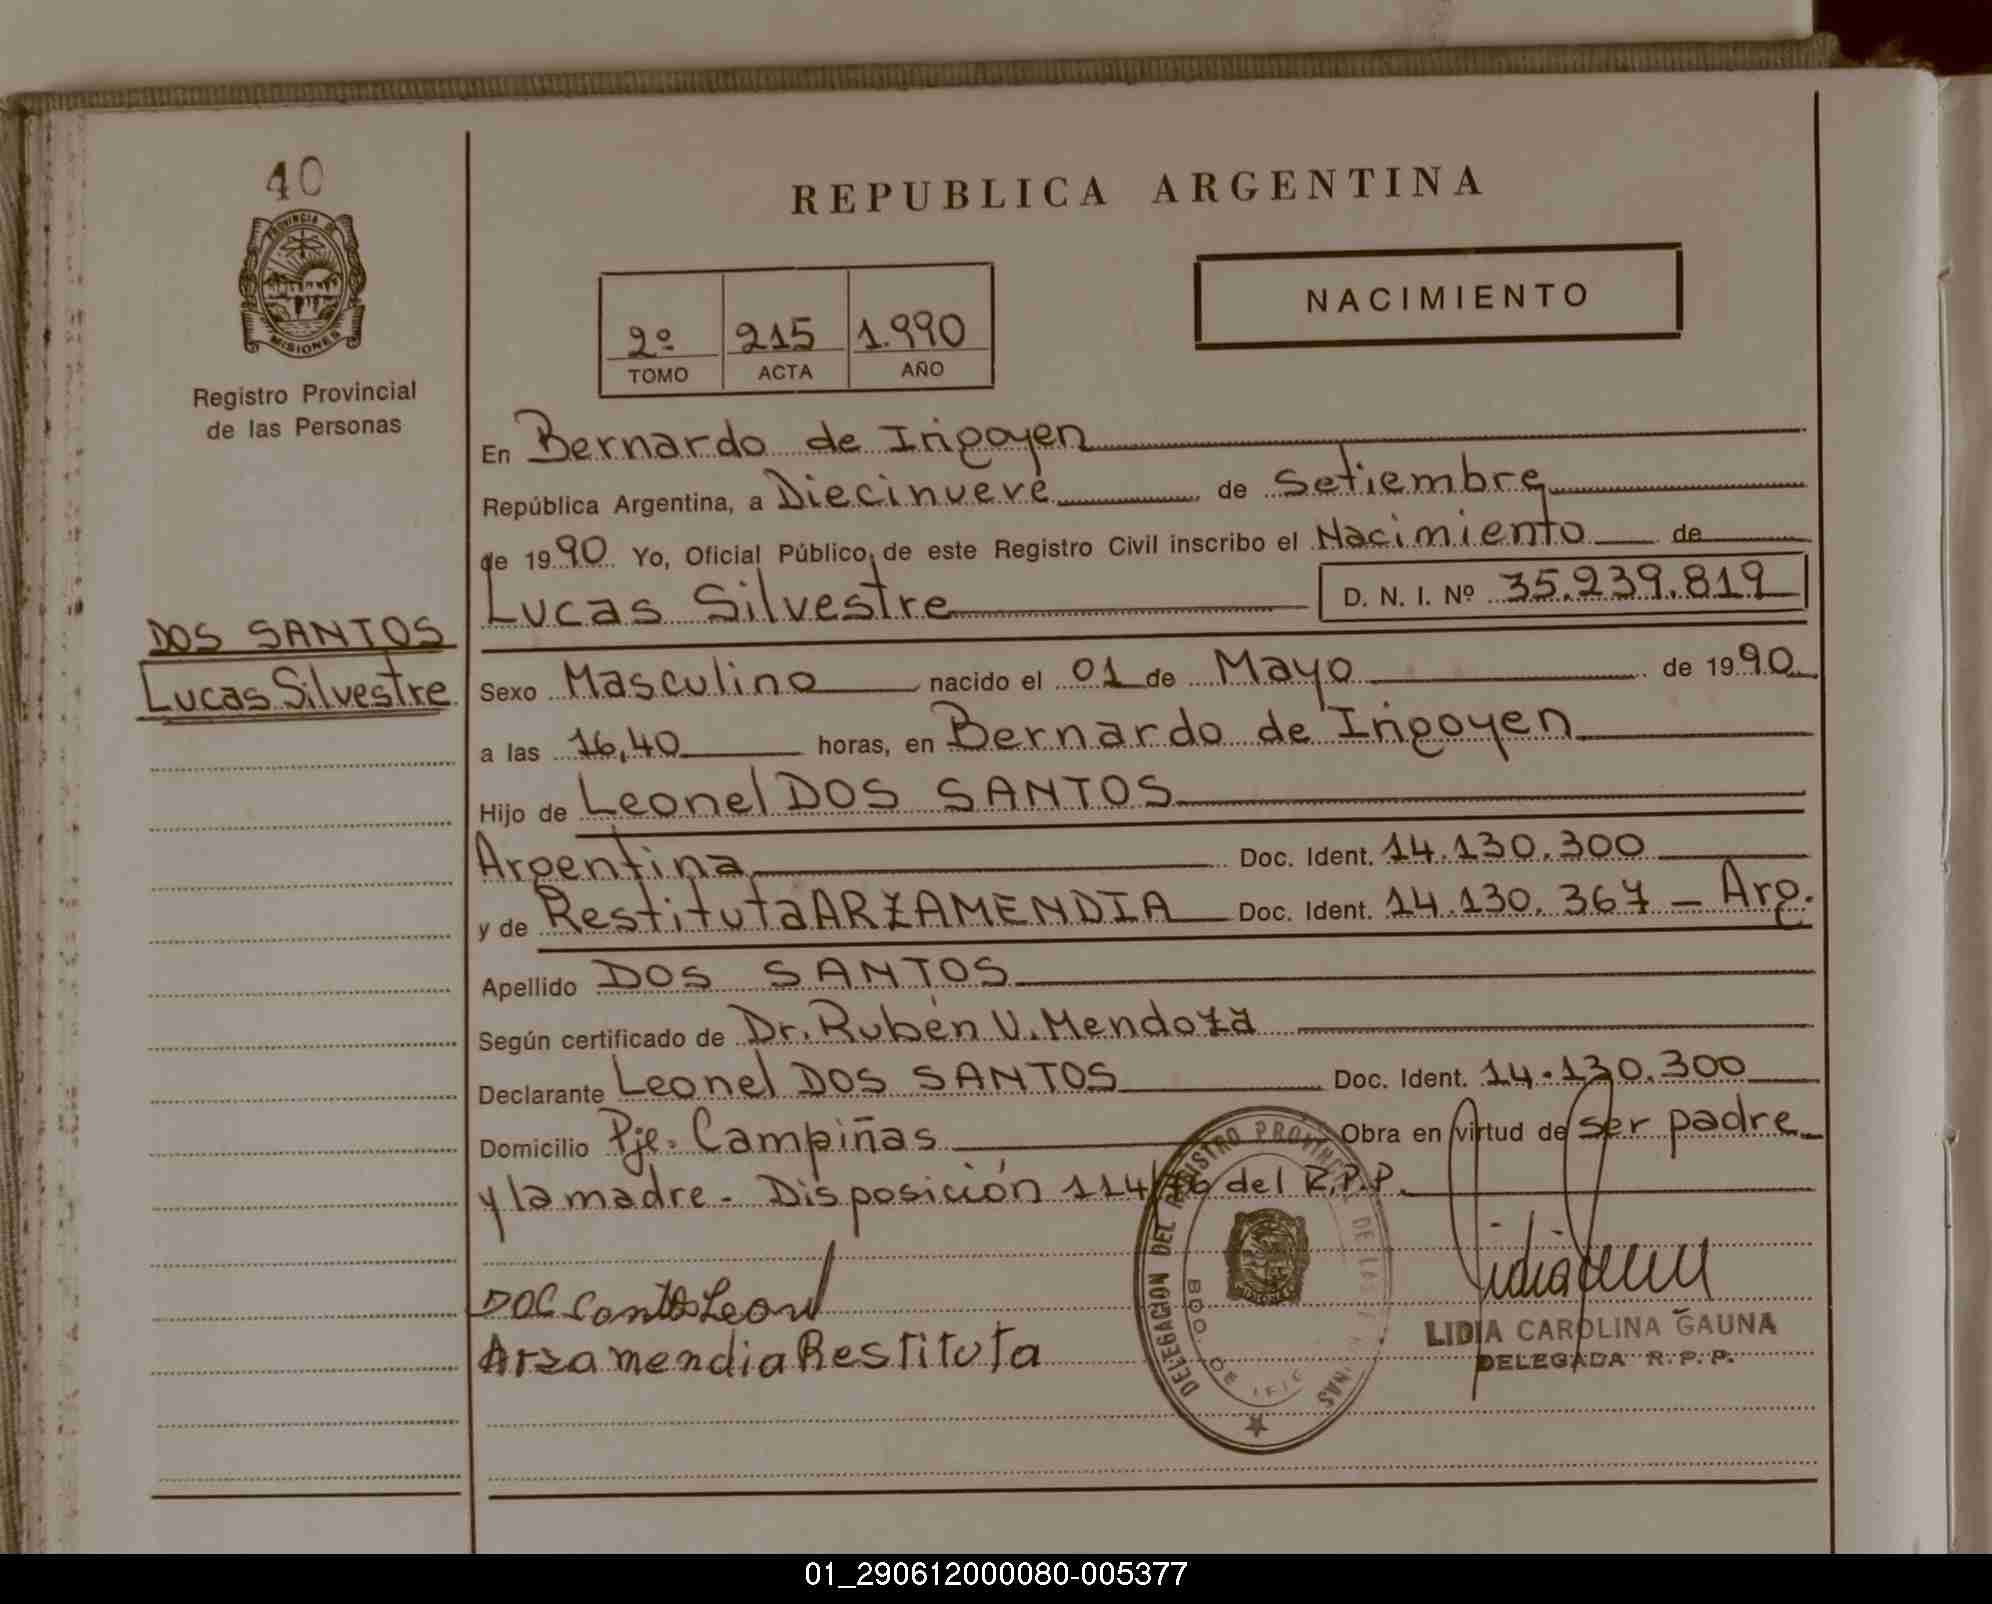 40
PROVINCIA DE
MISIONES
Registro Provincial
de las Personas
DOS SANTOS
Lucas Silvestre
REPUBLICA ARGENTINA
NACIMIENTO
2º 215 1.990
TOMO ACTA AÑO
En Bernardo de Irigoyen
República Argentina, a Diecinueve de Setiembre
de 1990 Yo, Oficial Público, de este Registro Civil inscribo el Nacimiento de
Lucas Silvestre D. N. I. Nº 35.239.819
Sexo Masculino nacido el 01 de Mayo de 1990
a las 16,40 horas, en Bernardo de Irigoyen
Hijo de Leonel DOS SANTOS
Argentina Doc. Ident. 14.130.300
y de Restituta ARZAMENDIA Doc. Ident. 14.130.367 - Arg.
Apellido DOS SANTOS
Según certificado de Dr. Rubén V. Mendoza
Declarante Leonel DOS SANTOS Doc. Ident. 14.130.300
Domicilio Pje. Campiñas Obra en virtud de ser padre
y la madre - Disposición 114/76 del R.P.P.
Arzamendia Restituta
DELEGACION DEL REGISTRO PROVINCIAL DE LAS
BDO. DE
LIDIA CAROLINA GAUNA
DELEGADA R. P. P.
01_290612000080-005377